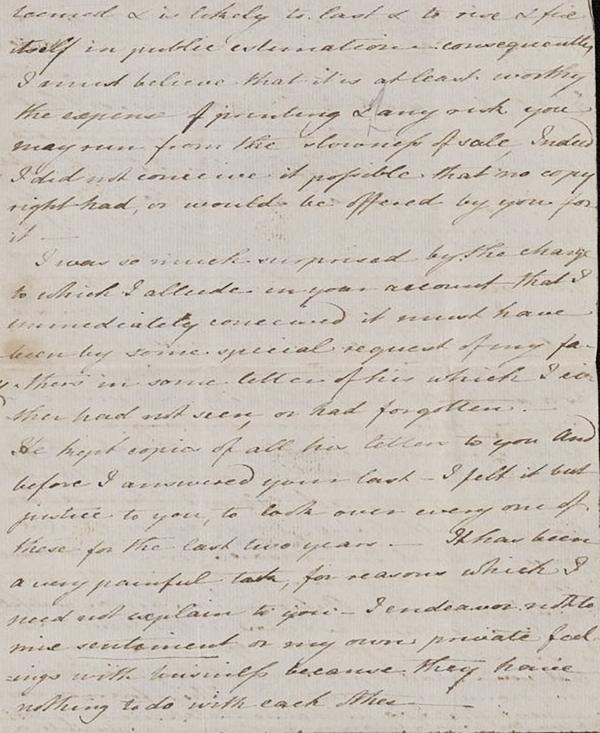 teemed & is likely to last & to rise & fix
itself in public estimation – consequently
I must believe that it is at least worthy
the expense of printing & any risk you
may run from the slowness of sale, Indeed
I did not conceive it possible that no copy
right had, or would be offered by you for
it —
I was so much surprised by the charge
to which I allude in your account that I
immediately conceived it must have
been by some special request of my fa-
thers in some letter of his which I ei-
ther had not seen, or had forgotten. –
He kept copies of all his letters to you And
before I answered your last – I felt it but
justice to you, to look over every one of
these for the last two years. — It has been
a very painful task, for reasons which I
need not explain to you – I endeavor not to
mix sentiment or my own private feel
-ings with business because they have
nothing to do with each other —